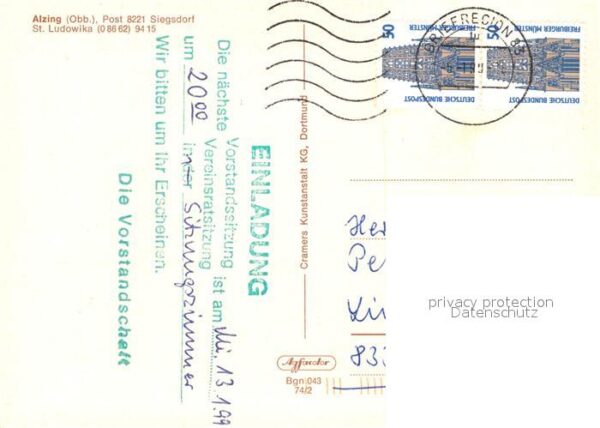 Alzing (Obb.), Post 8221 Siegsdorf
St. Ludowika (0 86 62) 94 15
EINLADUNG
Die nächste Vorstandssitzung
Vereinsratsitzung ist am Mi 13.1.99
um 20 00 in der Sitzungszimmer
Wir bitten um Ihr Erscheinen.
Die Vorstandschaft
Cramers Kunstanstalt KG, Dortmund
Agfacolor
Bgn 043
74/2
BRIEFREGION 83
50
FREIBURGER MÜNSTER
DEUTSCHE BUNDESPOST
50
FREIBURGER MÜNSTER
DEUTSCHE BUNDESPOST
He
Pe
Li
83
privacy protection
Datenschutz